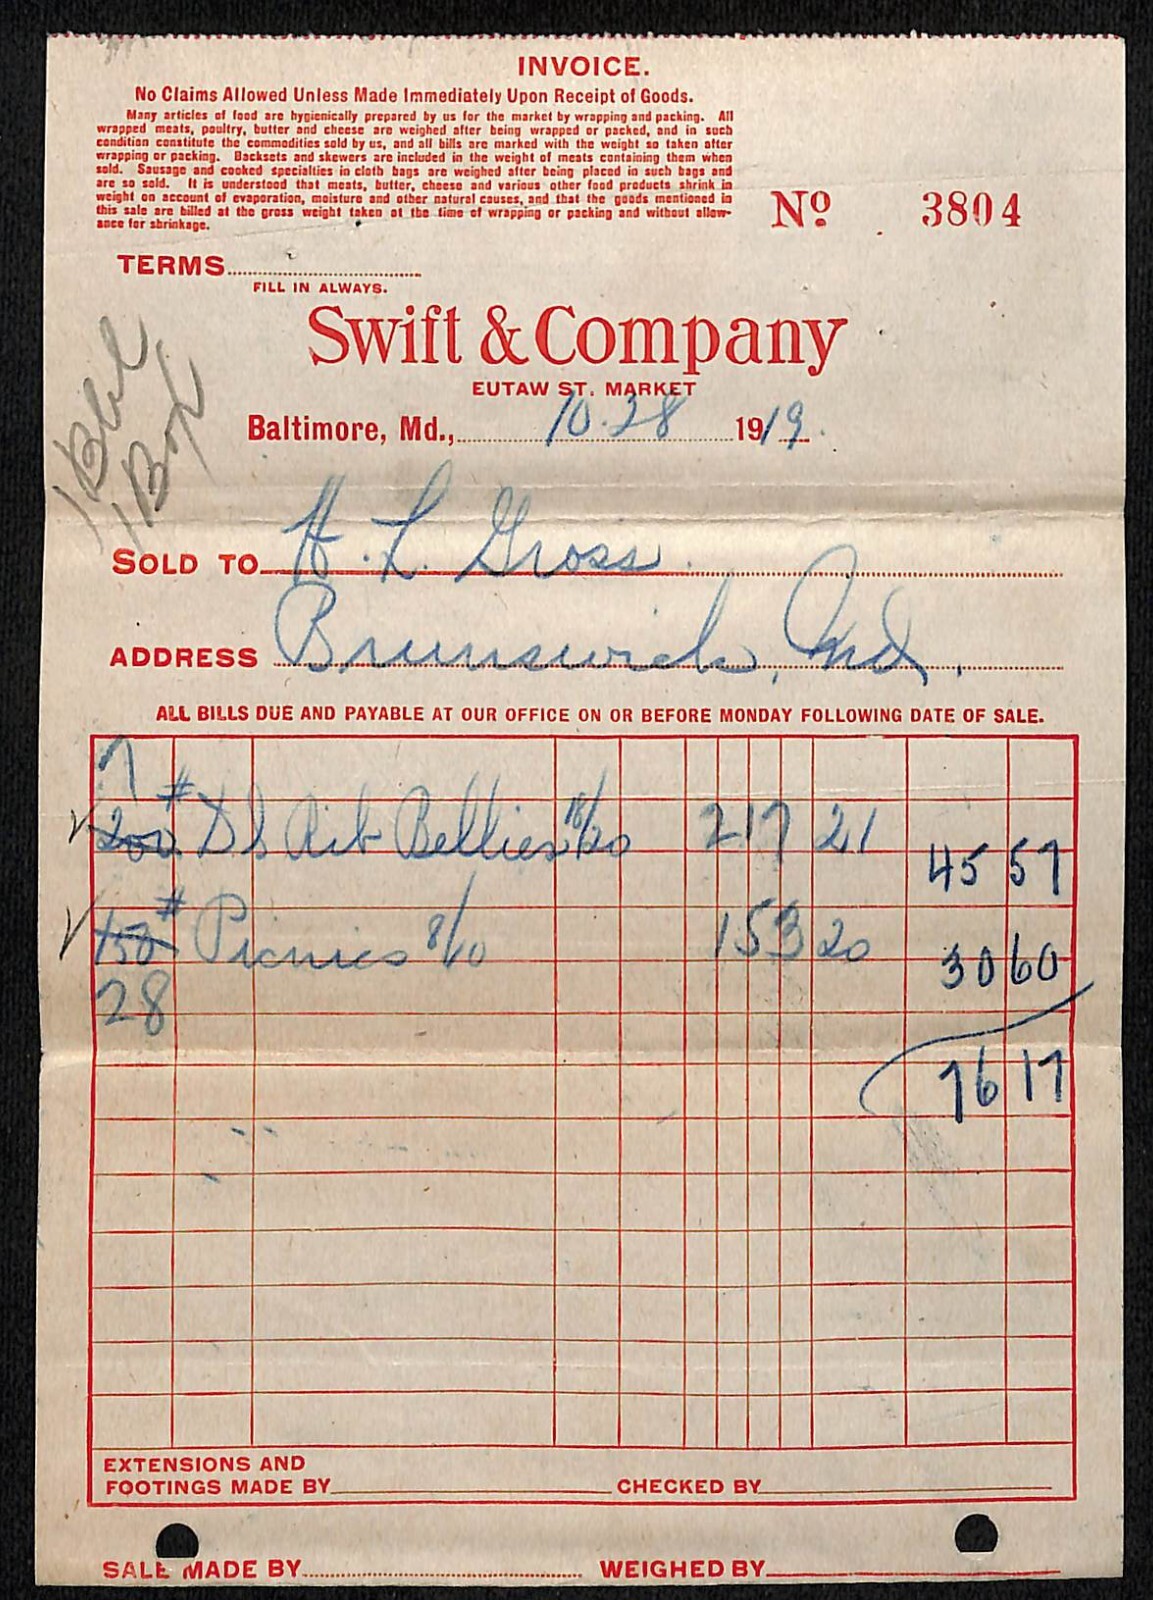 INVOICE.
No Claims Allowed Unless Made Immediately Upon Receipt of Goods.
Many articles of food are hygienically prepared by us for the market by wrapping and packing. All
wrapped meats, poultry, butter and cheese are weighed after being wrapped or packed, and in such
condition constitute the commodities sold by us, and all bills are marked with the weight so taken after
wrapping or packing. Backsets and skewers are included in the weight of meats containing them when
sold. Sausage and cooked specialties in cloth bags are weighed after being placed in such bags and
are so sold. It is understood that meats, butter, cheese and various other food products shrink in
weight on account of evaporation, moisture and other natural causes, and that the goods mentioned in
this sale are billed at the gross weight taken at the time of wrapping or packing and without allow-
ance for shrinkage.
Nº 3804
TERMS
FILL IN ALWAYS.
Swift & Company
EUTAW ST. MARKET
Baltimore, Md., 10.28 1919.
1 Bbl
1 Box
SOLD TO H. L. Gross
ADDRESS Brunswick, Md.
ALL BILLS DUE AND PAYABLE AT OUR OFFICE ON OR BEFORE MONDAY FOLLOWING DATE OF SALE.
7
200# D S Rib Bellies 18/20 217 21 45 57
150# Picnics 8/10 153 20 30 60
28
76 17
EXTENSIONS AND
FOOTINGS MADE BY CHECKED BY
SALE MADE BY WEIGHED BY